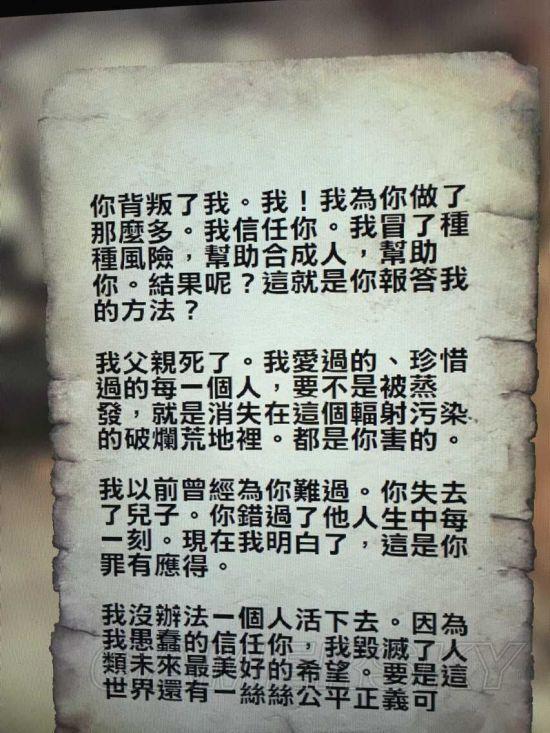 你背叛了我。我！我為你做了
那麼多。我信任你。我冒了種
種風險，幫助合成人，幫助
你。結果呢？這就是你報答我
的方法？
我父親死了。我愛過的、珍惜
過的每一個人，要不是被蒸
發，就是消失在這個輻射污染
的破爛荒地裡。都是你害的。
我以前曾經為你難過。你失去
了兒子。你錯過了他人生中每
一刻。現在我明白了，這是你
罪有應得。
我沒辦法一個人活下去。因為
我愚蠢的信任你，我毀滅了人
類未來最美好的希望。要是這
世界還有一絲絲公平正義可